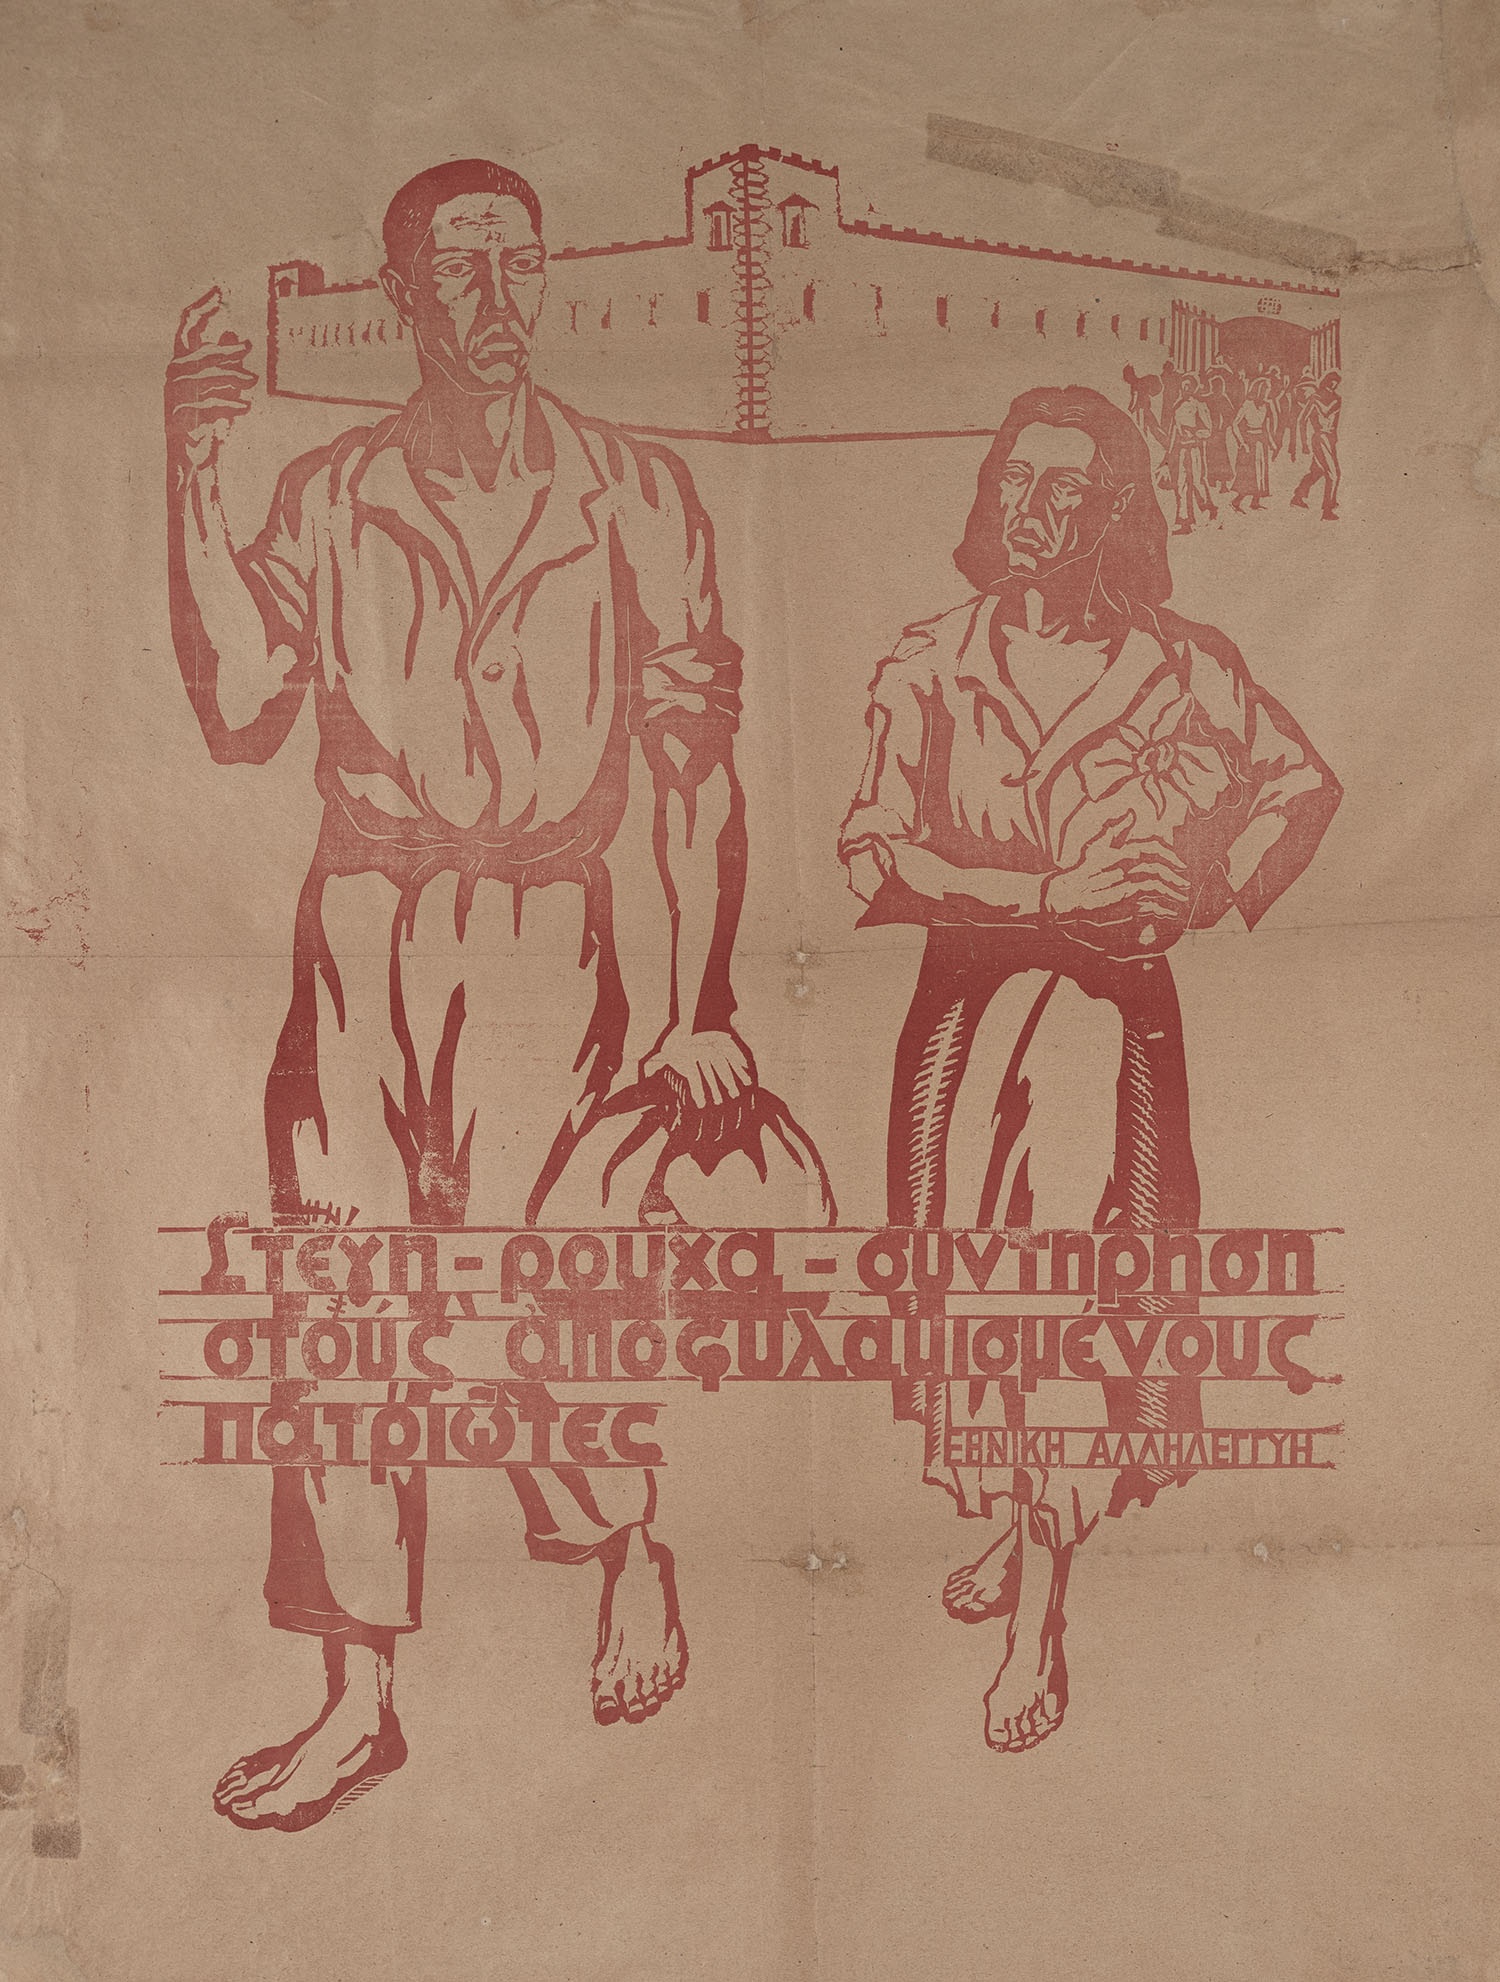 Στέγη - ρουχα - συντήρηση
στούς ἀποφυλαμισμένους
πατριῶτες
ΕΘΝΙΚΗ ΑΛΛΗΛΕΓΓΥΗ